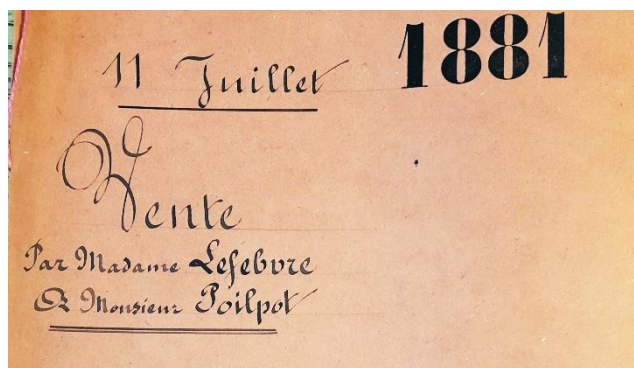 11 Juillet 1881
Vente
Par Madame Lefebvre
A Monsieur Poilpot